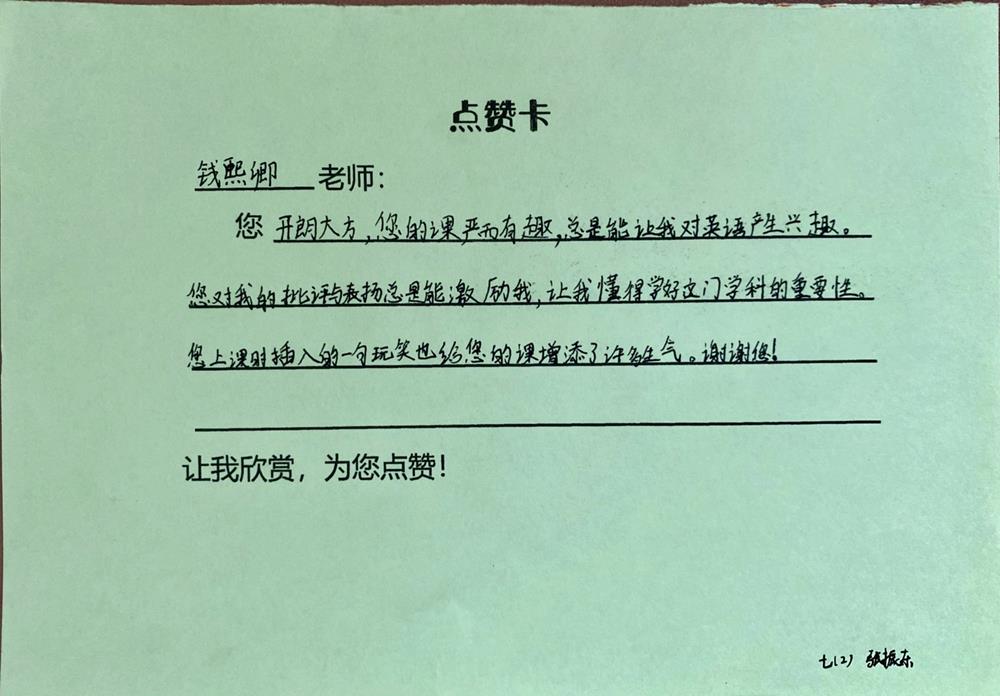 点赞卡
钱熙卿 老师：
您 开朗大方，您的课严而有趣，总是能让我对英语产生兴趣。
您对我的批评与表扬总是能激励我，让我懂得学好这门学科的重要性。
您上课时插入的一句玩笑也给您的课增添了许多生气。谢谢您！
让我欣赏，为您点赞！
七(2) 张振东